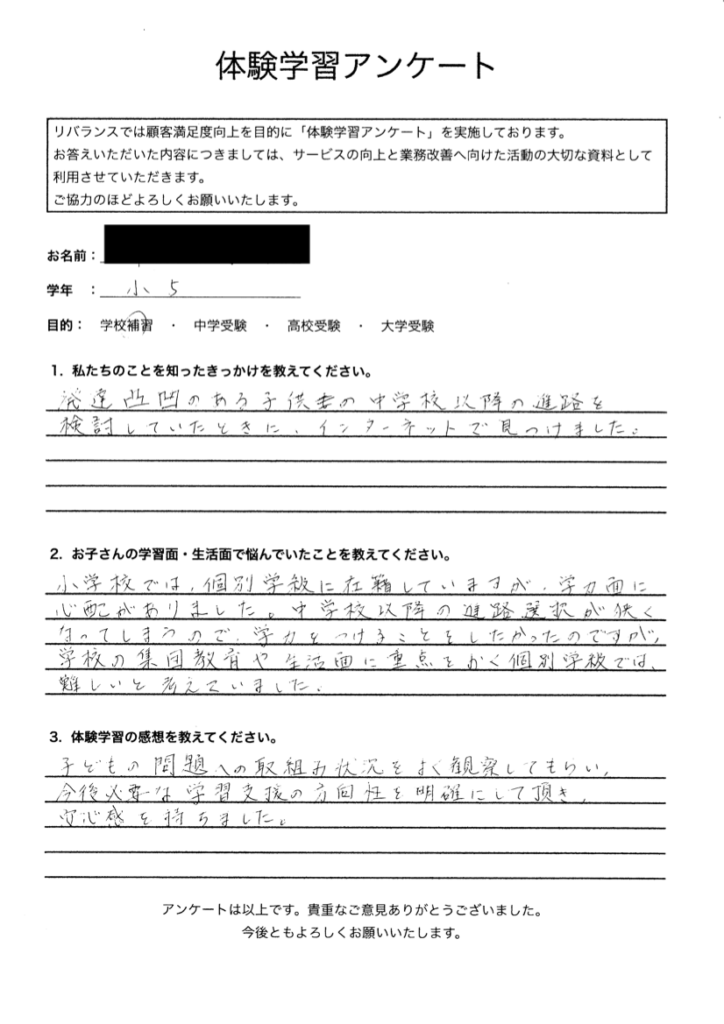 体験学習アンケート
リバランスでは顧客満足度向上を目的に「体験学習アンケート」を実施しております。
お答えいただいた内容につきましては、サービスの向上と業務改善へ向けた活動の大切な資料として
利用させていただきます。
ご協力のほどよろしくお願いいたします。
お名前：
学年　：小5
目的：　学校補習　・　中学受験　・　高校受験　・　大学受験
1. 私たちのことを知ったきっかけを教えてください。
発達凸凹のある子供の中学校以降の進路を
検討していたときに、インターネットで見つけました。
2. お子さんの学習面・生活面で悩んでいたことを教えてください。
小学校では、個別学級に在籍していますが、学力面に
心配がありました。中学校以降の進路選択が狭く
なってしまうので、学力をつけることをしたかったのですが、
学校の集団教育や生活面に重点をおく個別学級では、
難しいと考えていました。
3. 体験学習の感想を教えてください。
子どもの問題への取組み状況をよく観察してもらい、
今後必要な学習支援の方向性を明確にして頂き、
安心感を持ちました。
アンケートは以上です。貴重なご意見ありがとうございました。
今後ともよろしくお願いいたします。